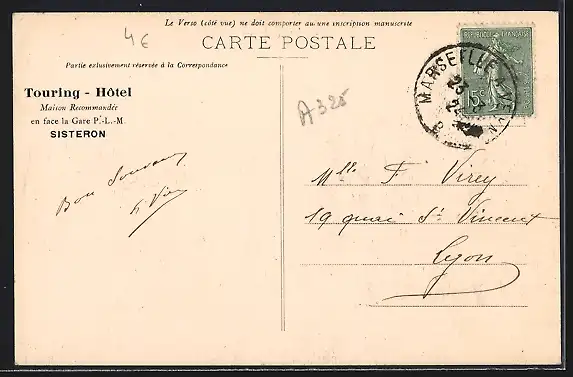 Le Verso (côté vue) ne doit comporter aucune inscription manuscrite
4€
CARTE POSTALE
Partie exclusivement réservée à la Correspondance
Touring - Hôtel
Maison Recommandée
en face la Gare P.-L.-M.
SISTERON
Bon Souvenir
A325
REPUBLIQUE FRANÇAISE
15c
MARSEILLE
23
Mlle F Virey
19 quai St Vincent
Lyon